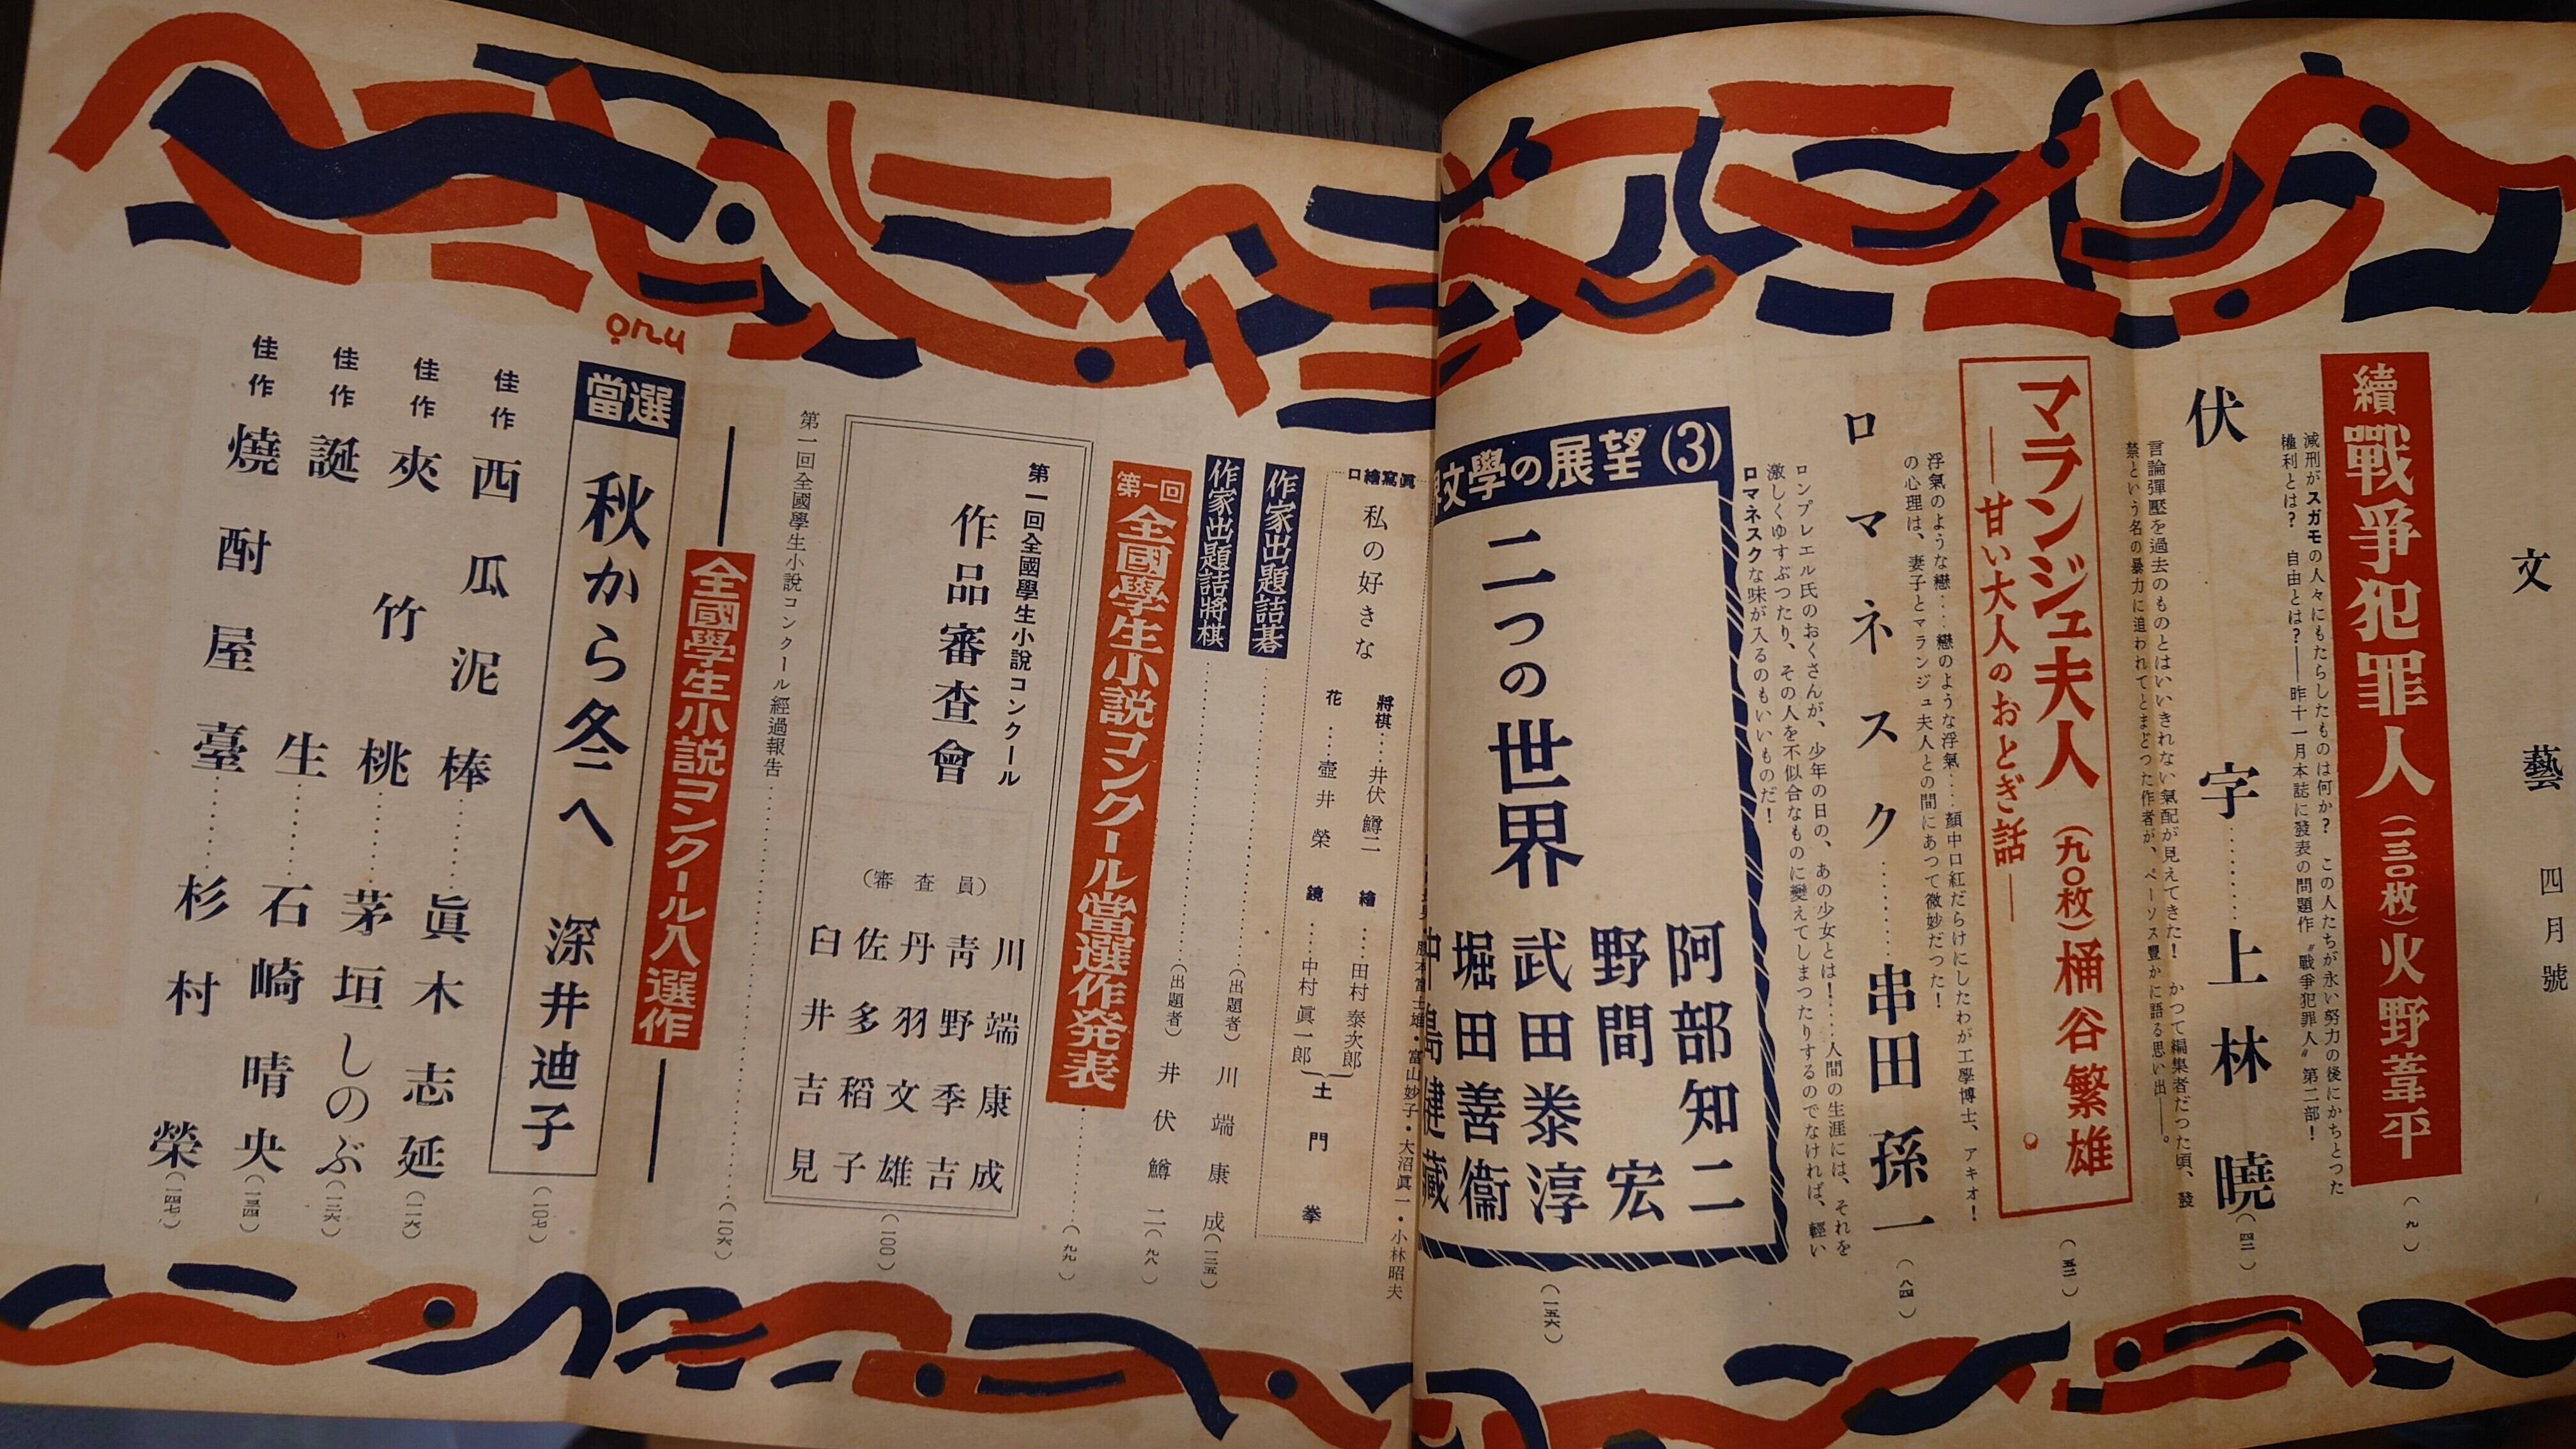 文藝 四月號
續戰爭犯罪人（一三〇枚）火野葦平（九）
減刑がスガモの人々にもたらしたものは何か？　この人たちが永い努力の後にかちとつた
權利とは？　自由とは？――昨十一月本誌に發表の問題作〝戰爭犯罪人〟第二部！
伏字……上林曉（四二）
言論彈壓を過去のものとはいいきれない氣配が見えてきた！　かつて編集者だつた頃、發
禁という名の暴力に追われてとまどつた作者が、ペーソス豐かに語る思い出――。
マランジェ夫人（九〇枚）桶谷繁雄
――甘い大人のおとぎ話――
（五二）
浮氣のような戀……戀のような浮氣……顏中口紅だらけにしたわが工學博士、アキオ！
の心理は、妻子とマランジュ夫人との間にあつて微妙だつた！
ロマネスク……串田孫一（八四）
ロンプレエル氏のおくさんが、少年の日の、あの少女とは！……人間の生涯には、それを
激しくゆすぶつたり、その人を不似合なものに變えてしまつたりするのでなければ、輕い
ロマネスクな味が入るのもいいものだ！
文學の展望（3）
二つの世界
阿部知二
野間宏
武田泰淳
堀田善衞
中島健藏
（一五六）
富山妙子・大沼眞一・小林昭夫
口繪寫眞
私の好きな
將棋……井伏鱒二　繪……田村泰次郎
花……壺井榮　鏡……中村眞一郎
土門拳
作家出題詰碁……（出題者）川端康成（一三五）
作家出題詰將棋……（出題者）井伏鱒二（九八）
第一回全國學生小説コンクール當選作発表……（九九）
第一回全國學生小說コンクール
作品審査會
（審査員）
川端康成
靑野季吉
丹羽文雄
佐多稻子
臼井吉見
（一〇〇）
第一回全國學生小說コンクール經過報告……（一〇六）
全國學生小説コンクール入選作
當選　秋から冬へ　深井迪子（一〇七）
佳作　西瓜泥棒……眞木志延（一一六）
佳作　夾竹桃……茅垣しのぶ（一二六）
佳作　誕生……石崎晴央（一三四）
佳作　燒酎屋臺……杉村榮（一四七）
onu